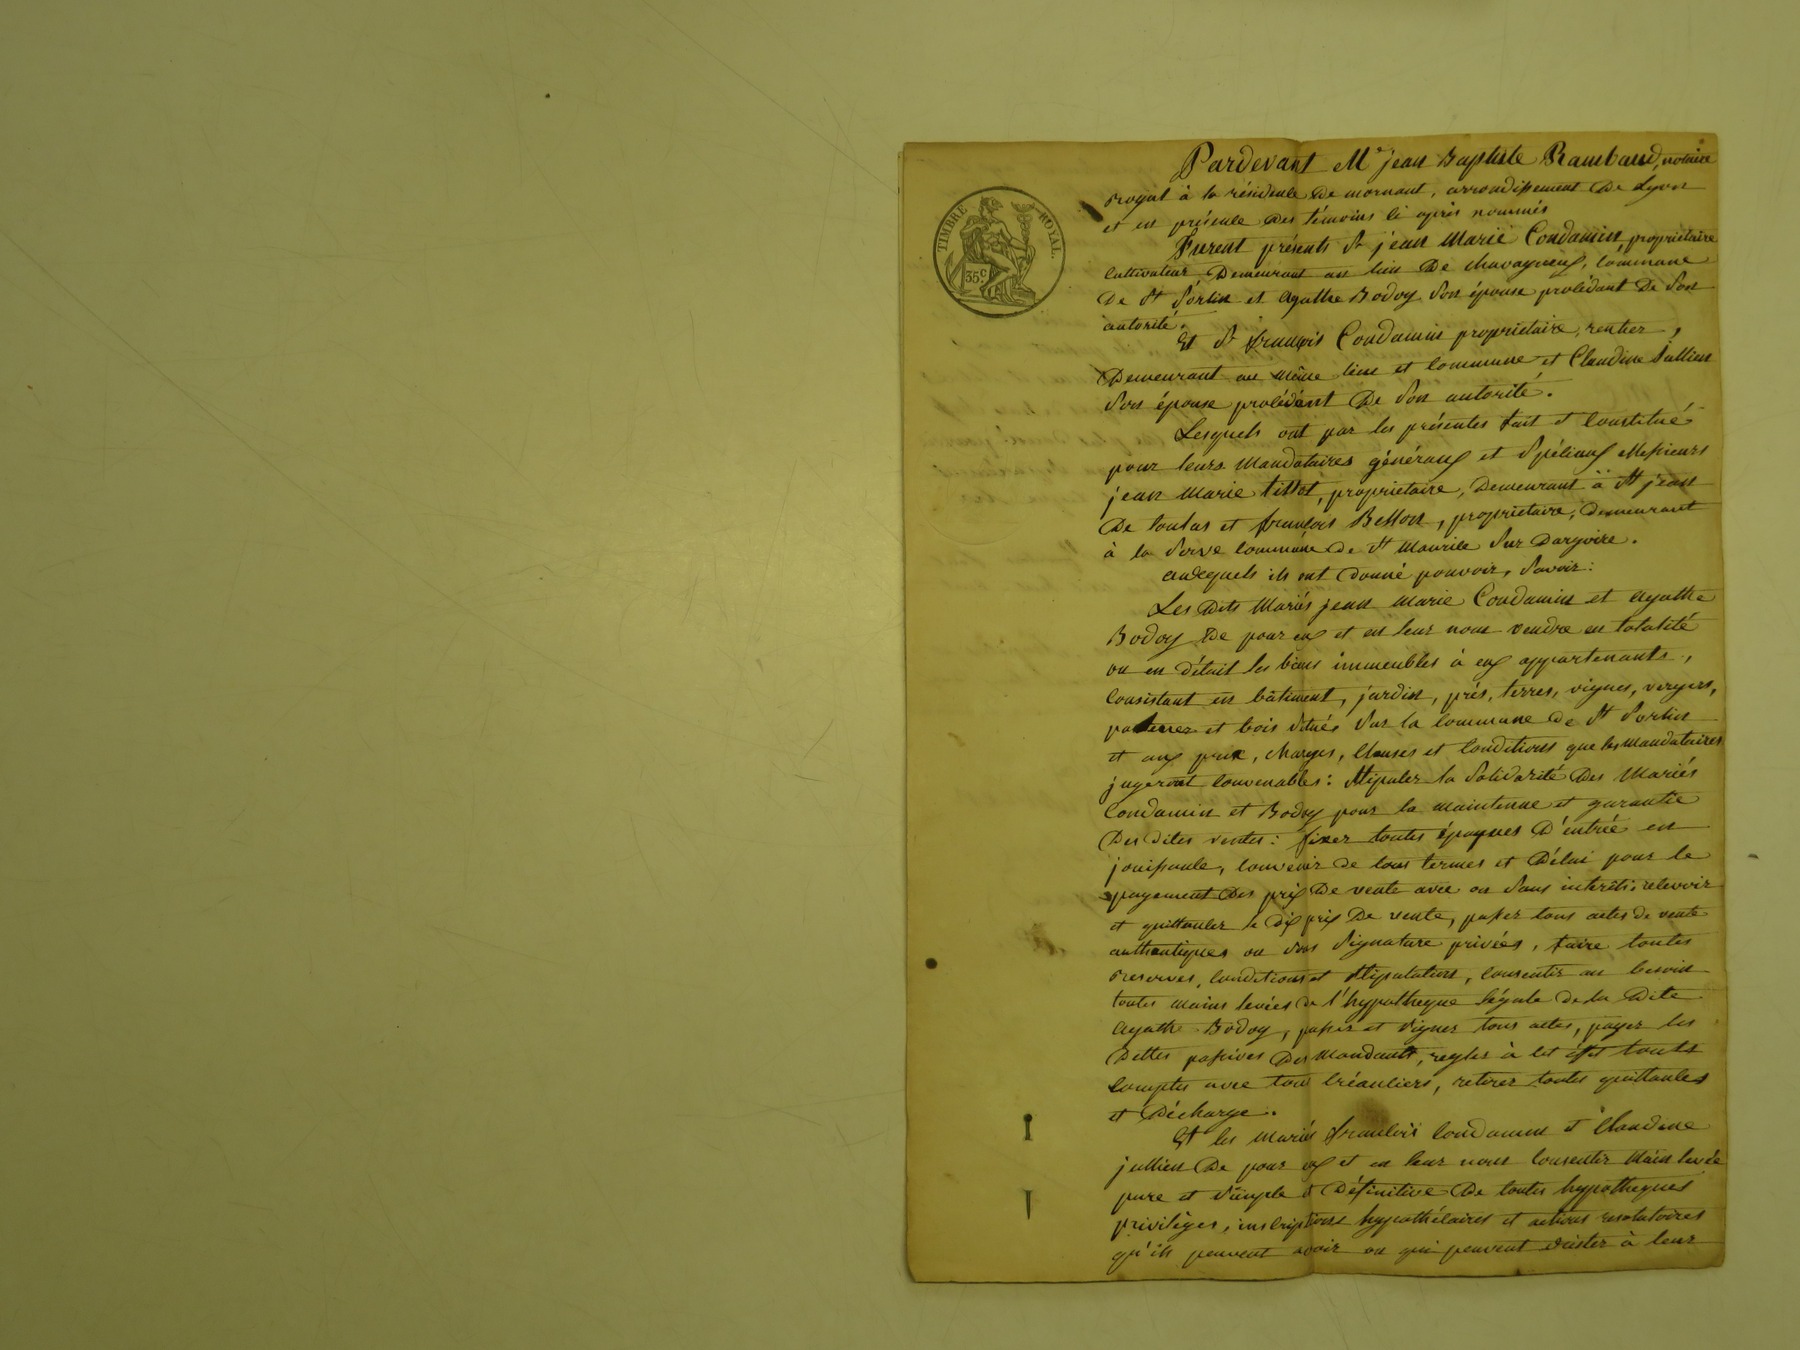 TIMBRE ROYAL.
35.c
Pardevant Me jean Baptiste Rambaud, notaire
royal à la résidence de mornant, arrondissement de Lyon
et en présence des témoins ci après nommés
Furent présents Sr jean Marie Condamin, propriétaire
cultivateur demeurant au lieu de chavagneux, commune
de St Sorlin et agathe Bodoy son épouse procédant de son
autorité.
Et Sr françois Condamin propriétaire, rentier,
demeurant au même lieu et commune et Claudine Jullien
son épouse procédant de son autorité.
Lesquels ont par les présentes fait et constitué
pour leurs mandataires généraux et spéciaux Messieurs
jean Marie tissot, propriétaire, demeurant à St jean
de toulas et françois Besson, propriétaire, demeurant
à la serve commune de St Maurice sur Dargoire.
auxquels ils ont donné pouvoir, savoir:
Les dits Mariés jean Marie Condamin et agathe
Bodoy de pour eux et en leur nom vendre en totalité
ou en détail les biens immeubles à eux appartenants,
consistant en bâtiment, jardin, prés, terres, vignes, vergers,
et bois situés sur la commune de St Sorlin
et aux prix, charges, clauses et conditions que les mandataires
jugeront convenables: stipuler la solidarité des Mariés
Condamin et Bodoy pour la maintenue et garantie
des dites ventes: fixer toutes époques d'entrée en
jouissance, convenir de tous termes et délai pour le
payement des prix de vente avec ou sans intérêts: recevoir
et quittancer le dix prix de vente, passer tous actes de vente
authentiques ou sous signature privées, faire toutes
reserves, conditions et stipulations, consentir au besoin
toutes mains levées de l'hypotheque légale de la dite
agathe Bodoy, passer et signer tous actes, payer les
dettes passives des mandants, regler à cet effet touts
comptes avec tous créanciers, retirer toutes quittances
et décharge.
Et les mariés françois Condamin et Claudine
jullien de pour eux et en leur nom consentir main levée
pure et simple et définitive de toutes hypotheques
privilèges, inscriptions hypothécaires et actions resolutoires
qu'ils peuvent avoir ou qui peuvent exister à leur